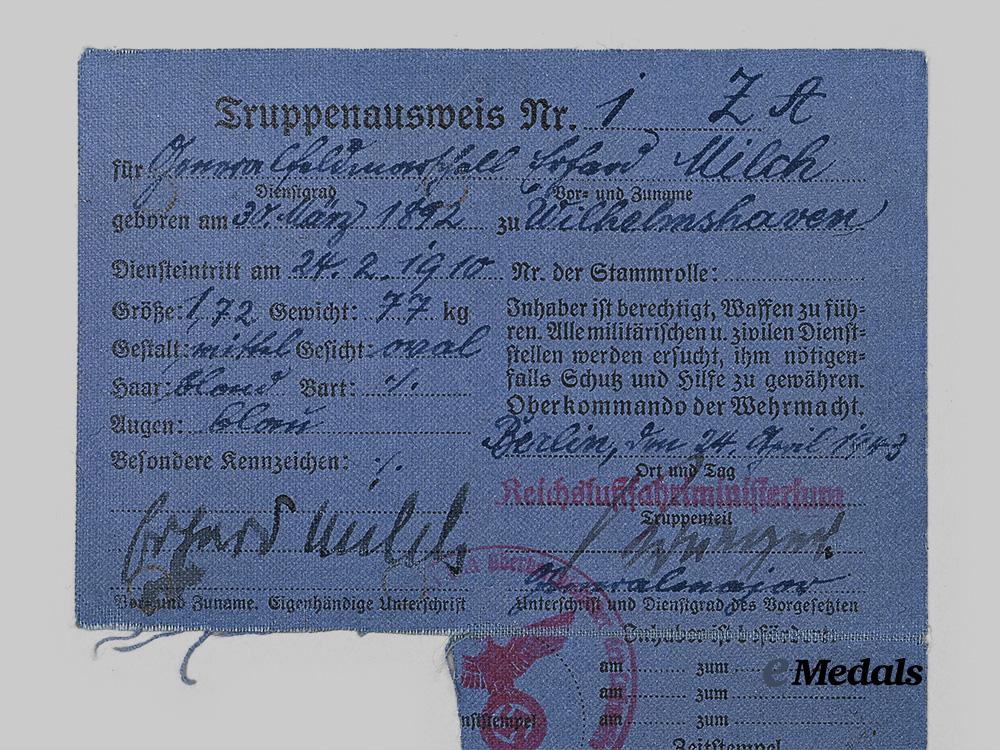 Truppenausweis Nr. 1 Z A
für Generalfeldmarschall Erhard Milch
Dienstgrad Vor- und Zuname
geboren am 30. März 1892 zu Wilhelmshaven
Diensteintritt am 24. 2. 1910
Größe: 1,72 Gewicht: 77 kg
Gestalt: mittel Gesicht: oval
Haar: blond Bart: ·/.
Augen: blau
Besondere Kennzeichen: ·/.
Erhard Milch
Vor- und Zuname. Eigenhändige Unterschrift
Nr. der Stammrolle:
Inhaber ist berechtigt, Waffen zu füh-
ren. Alle militärischen u. zivilen Dienst-
stellen werden ersucht, ihm nötigen-
falls Schutz und Hilfe zu gewähren.
Oberkommando der Wehrmacht.
Berlin, den 24. April 1943
Ort und Tag
Reichsluftfahrtministerium
Truppenteil
Generalmajor
Unterschrift und Dienstgrad des Vorgesetzten
Inhaber ist befördert:
am zum
am zum
nststempel am zum
Zeitstempel
eMedals